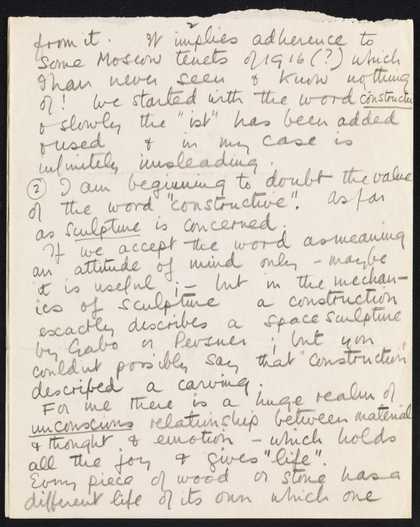 2
from it. It implies adherence to
some Moscow tenets of 1916 (?) which
I have never seen & know nothing
of! We started with the word constructive
& slowly the "ist" has been added
& used & in my case is
infinitely misleading.
② I am beginning to doubt the value
of the word "constructive". As far
as sculpture is concerned.
If we accept the word as meaning
an attitude of mind only – maybe
it is useful; – but in the mechan-
ics of sculpture a construction
exactly describes a space sculpture
by Gabo or Pevsner; but you
couldnt possibly say that "construction"
described a carving.
For me there is a huge realm of
unconscious relationship between material
& thought & emotion – which holds
all the joy & gives "life".
Every piece of wood or stone has a
different life of its own which one